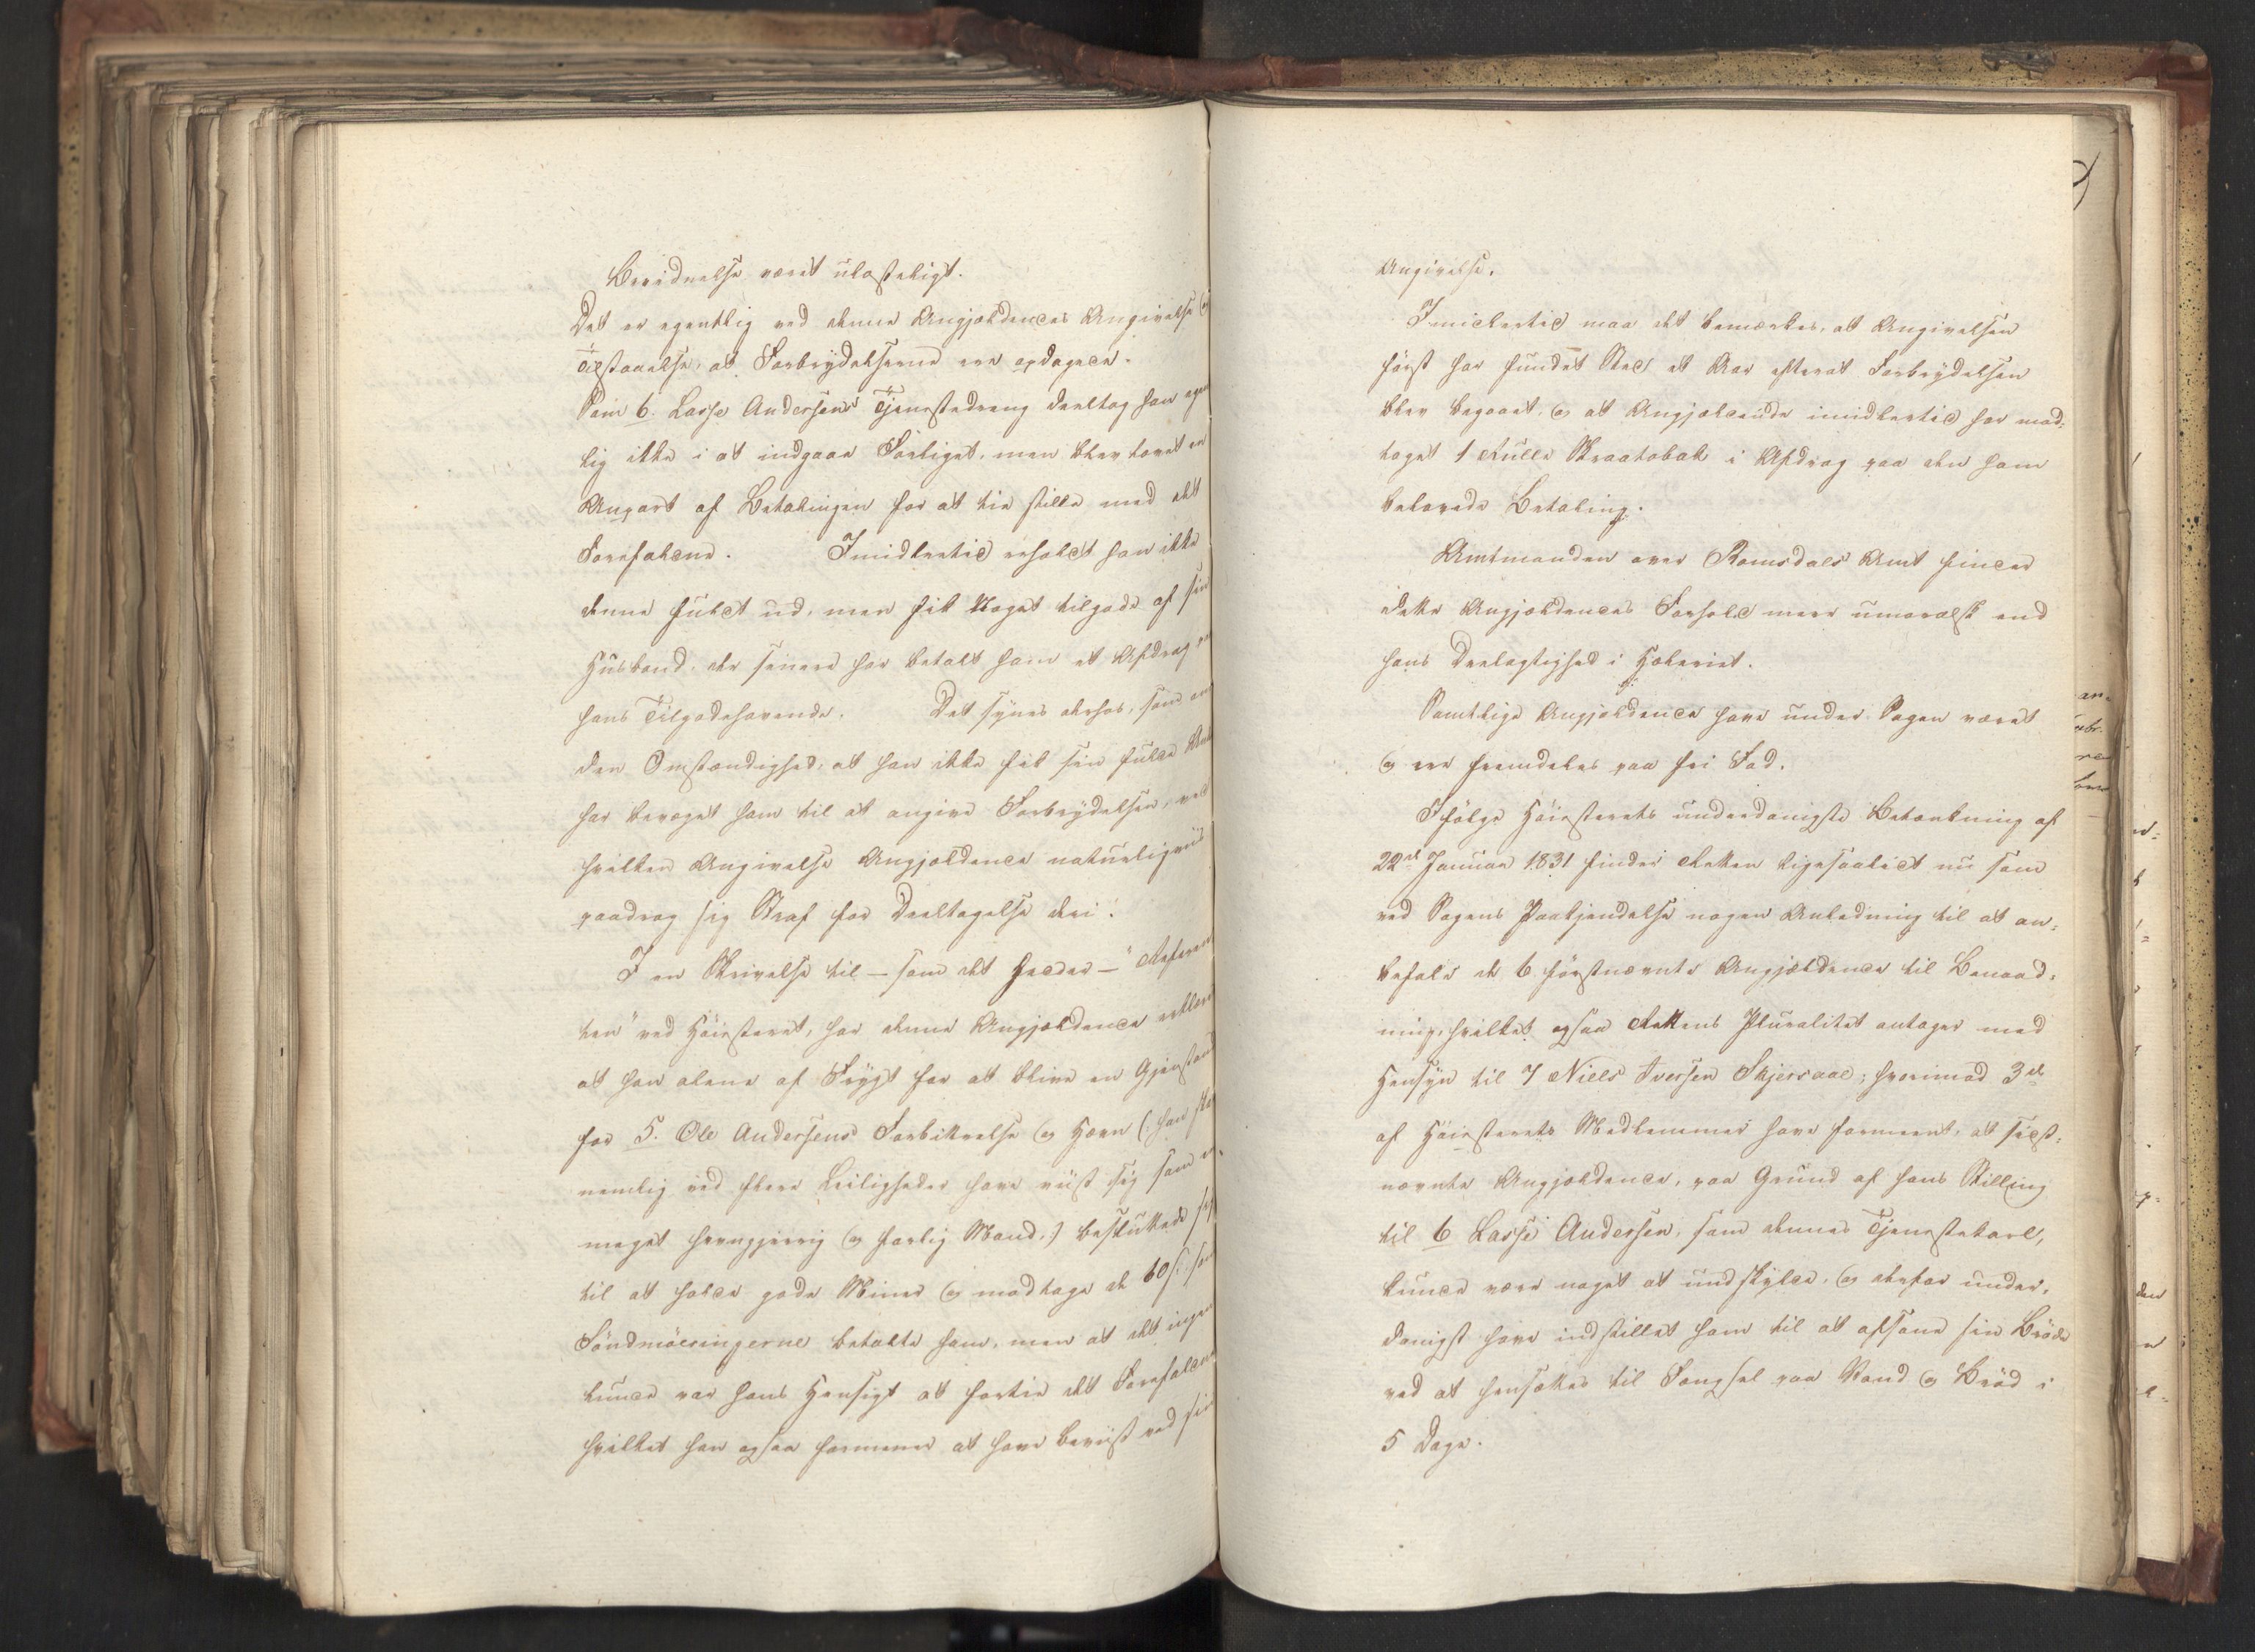 Bevidnelse været ulasteligt.
Det er egentlig ved denne Angjældendes Angivelse og
Tilstaaelse, at Forbrydelserne ere opdagede.
Som 6. Lasse Andersens Tjenestedreng deeltog han egen
lig ikke i at indgaae Forliget, men blev lovet en
Anpart af Betalingen for at tie stille med det
Forefaldne. Imidlertid erholdt han ikke
denne fuldt ud, men fik Noget tilgode af sin
Husbond, der senere har betalt ham et Afdrag paa
hans Tilgodehavende. Det synes derhos, som om
den Omstændighed, at han ikke fik sin fulde
har bevæget ham til at angive Forbrydelsen, ved
hvilken Angivelse Angjældende naturligviis
paadrog sig Straf for Deeltagelse deri.
I en Skrivelse til – som det heeder – "Referen
ten" ved Høiesteret, har denne Angjældende erklæret
at han alene af Frygt for at blive en Gjenstand
for 5. Ole Andersens Forbittrelse og Hævn (: han skal
nemlig ved flere Leiligheder have viist sig som en
meget hevngjerrig og farlig Mand :) besluttede sig
til at holde gode Miner og modtage de 60 s. som
Söndmöringerne betalte ham, men at det ingen
lunde var hans Hensigt at fortie det Forefaldne
hvilket han ogsaa formener at have beviist ved sin
Angivelse.
Imidlertid maa det bemærkes, at Angivelsen
først har fundet Sted et Aar efterat Forbrydelsen
blev begaaet, og at Angjældende imidlertid har mod-
taget 1 Rulle Skraatobak i Afdrag paa den ham
belovede Betaling.
Amtmanden over Romsdals Amt finder
dette Angjældendes Forhold mere umoralsk end
hans Deelagtighed i Hæleriet.
Samtlige Angjældende have under Sagen været
og ere fremdeles paa fri Fod.
Ifølge Høiesterets underdanigste Betænkning af
22de Januar 1831 finder Retten ligesaalidt nu som
ved Sagens Paakjendelse nogen Anledning til at an-
befale de 6 førstnævnte Angjældende til Benaad-
ning, hvilket ogsaa Rettens Pluralitet antager med
Hensyn til 7 Niels Iversen Skjersaae; hvorimod 3de
af Høiesterets Medlemmer have formeent, at sidst-
nævnte Angjældende, paa Grund af hans Stilling
til 6 Lasse Andersen, som dennes Tjenestekarl,
kunde være noget at undskylde, og derfor under-
danigst have indstillet ham til at afsone sin Brøde
ved at hensættes til Fængsel paa Vand og Brød i
5 Dage.